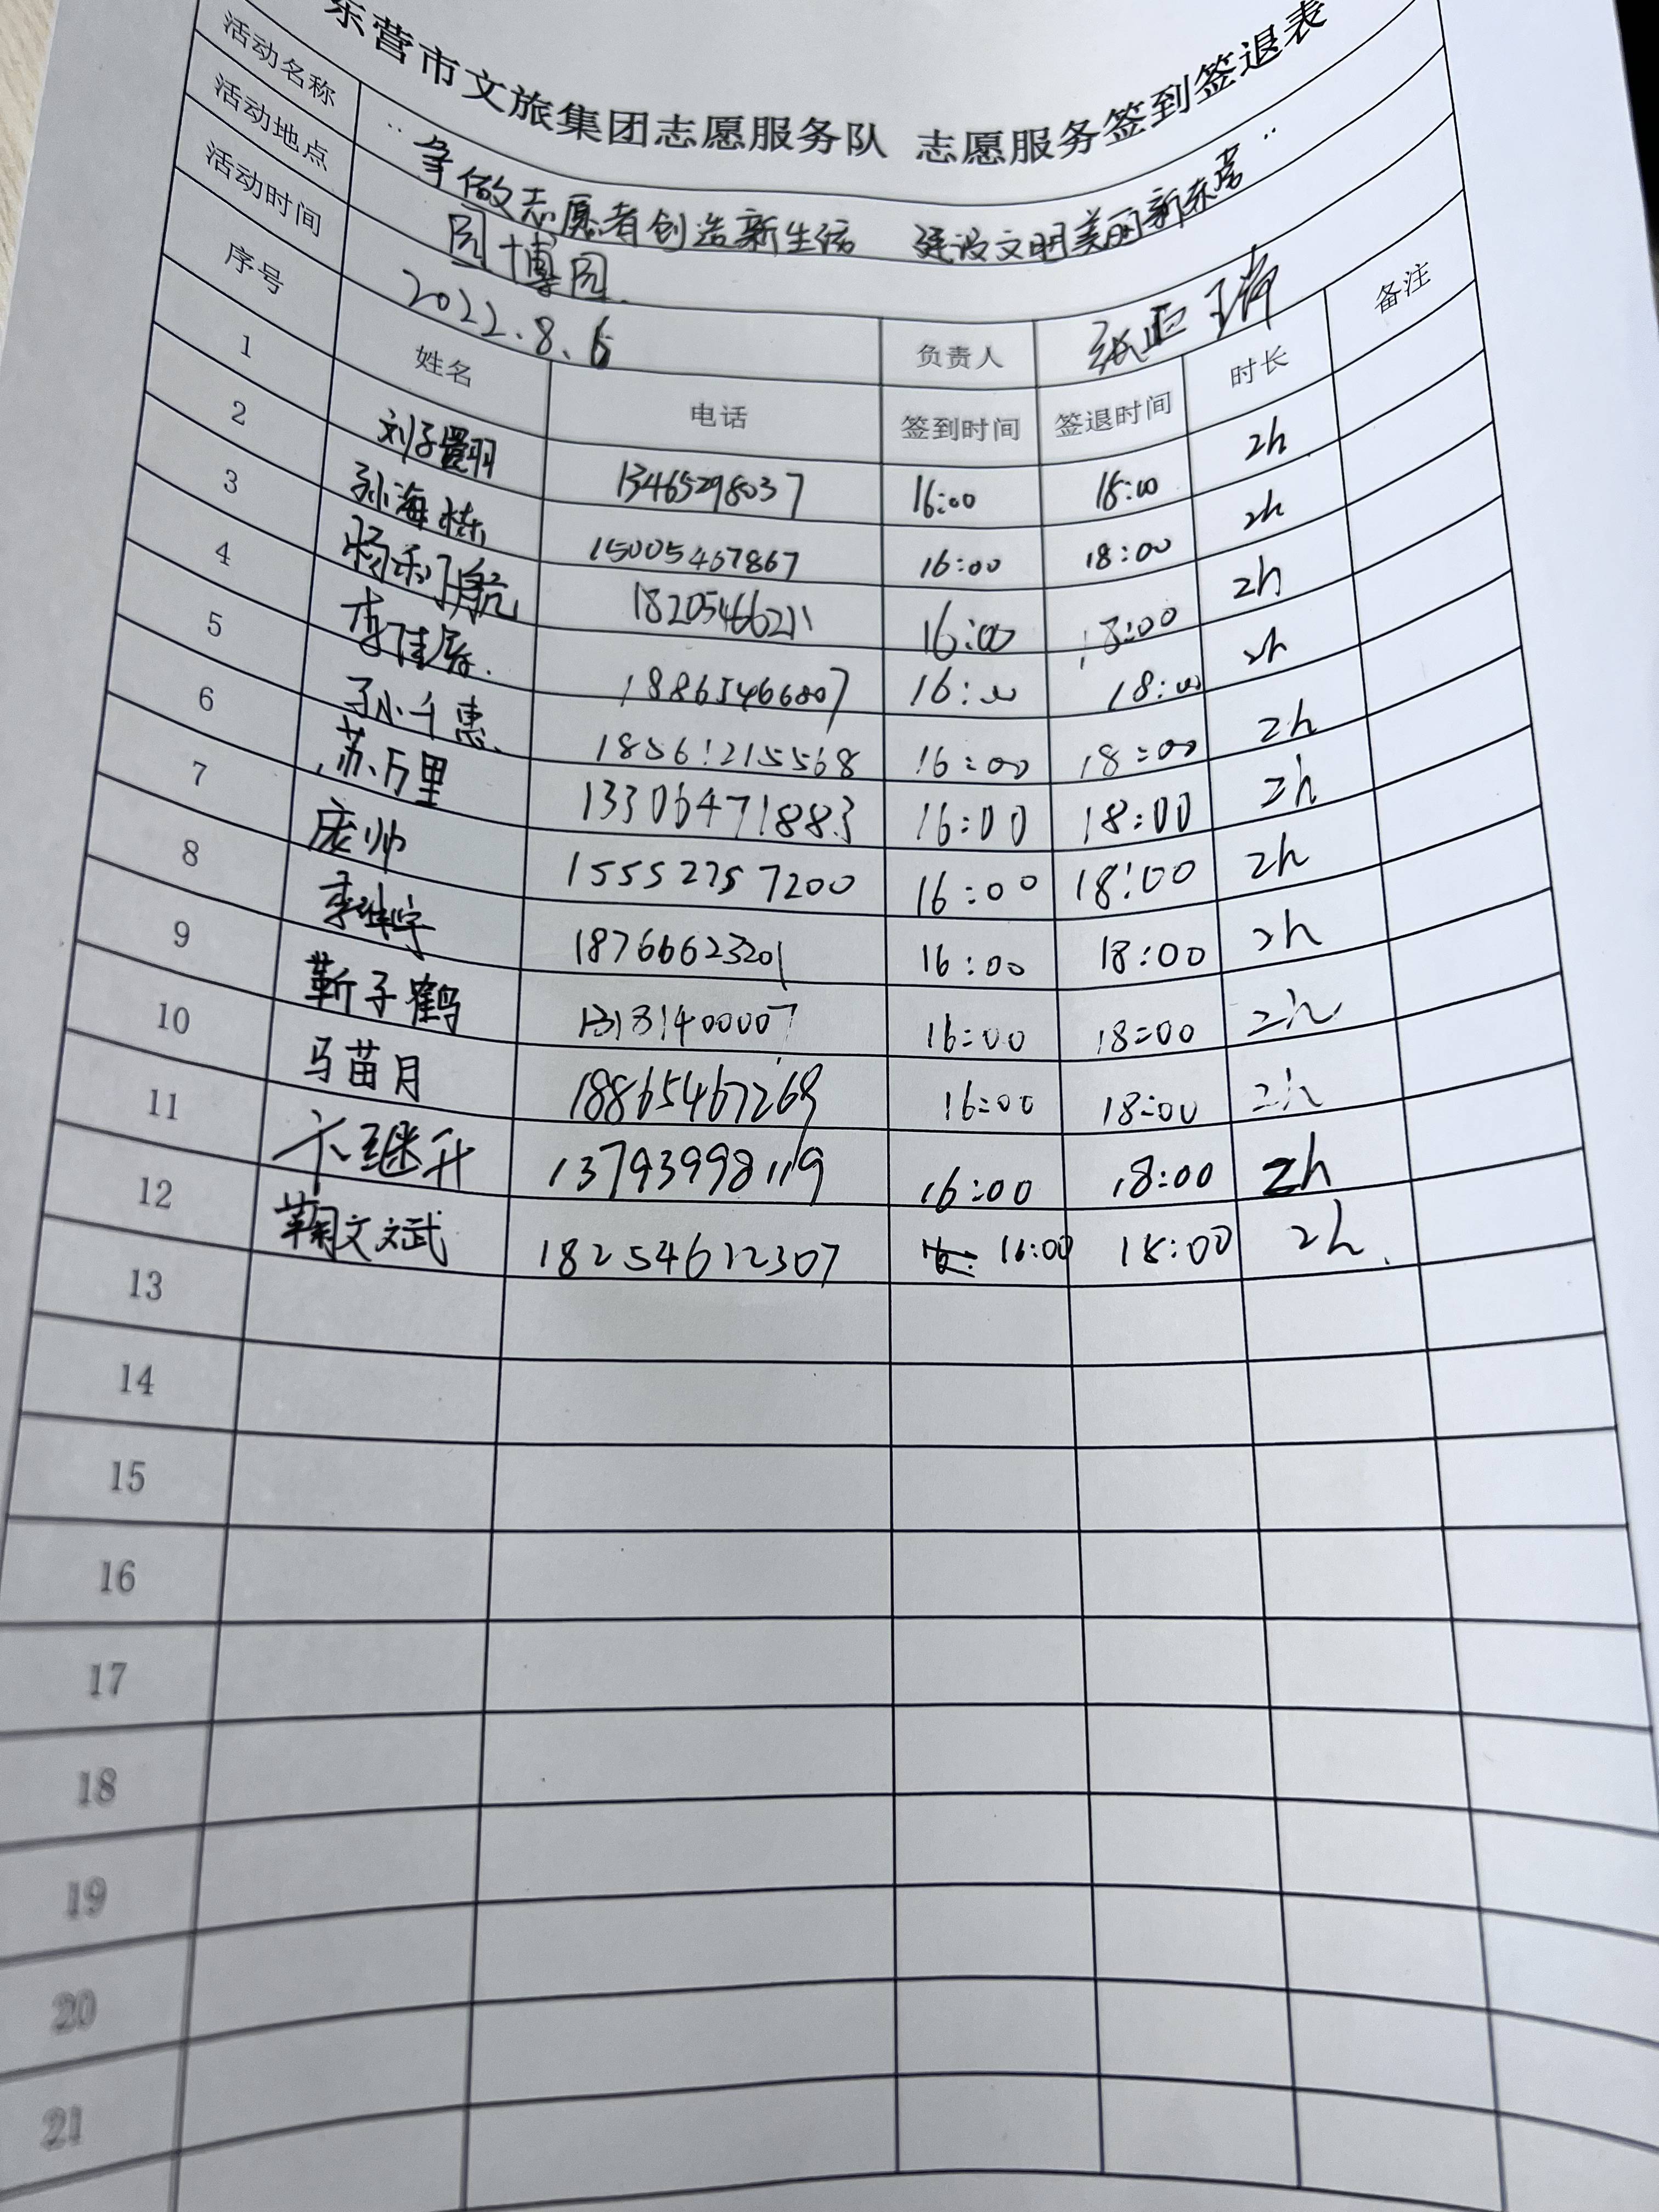 东营市文旅集团志愿服务队 志愿服务签到签退表
活动名称 "争做志愿者创造新生活 建设文明美丽新东营"
活动地点 园博园.
活动时间 2022.8.6 负责人 张亚琦
序号 姓名 电话 签到时间 签退时间 时长 备注
1 刘子羽 13465298037 16:00 18:00 2h
2 孙海栋 15005467867 16:00 18:00 2h
3 杨航 18205466211 16:00 18:00 2h
4 李佳 18865466807 16:00 18:00 2h
5 孙千惠 18561215568 16:00 18:00 2h
6 苏万里 13306471883 16:00 18:00 2h
7 庞帅 15552757200 16:00 18:00 2h
8 李宇 18766623201 16:00 18:00 2h
9 靳子鹤 13181400007 16:00 18:00 2h
10 马苗月 18865467269 16:00 18:00 2h
11 卞继升 13793998119 16:00 18:00 2h
12 鞠文斌 18254612307 16:00 18:00 2h.
13
14
15
16
17
18
19
20
21